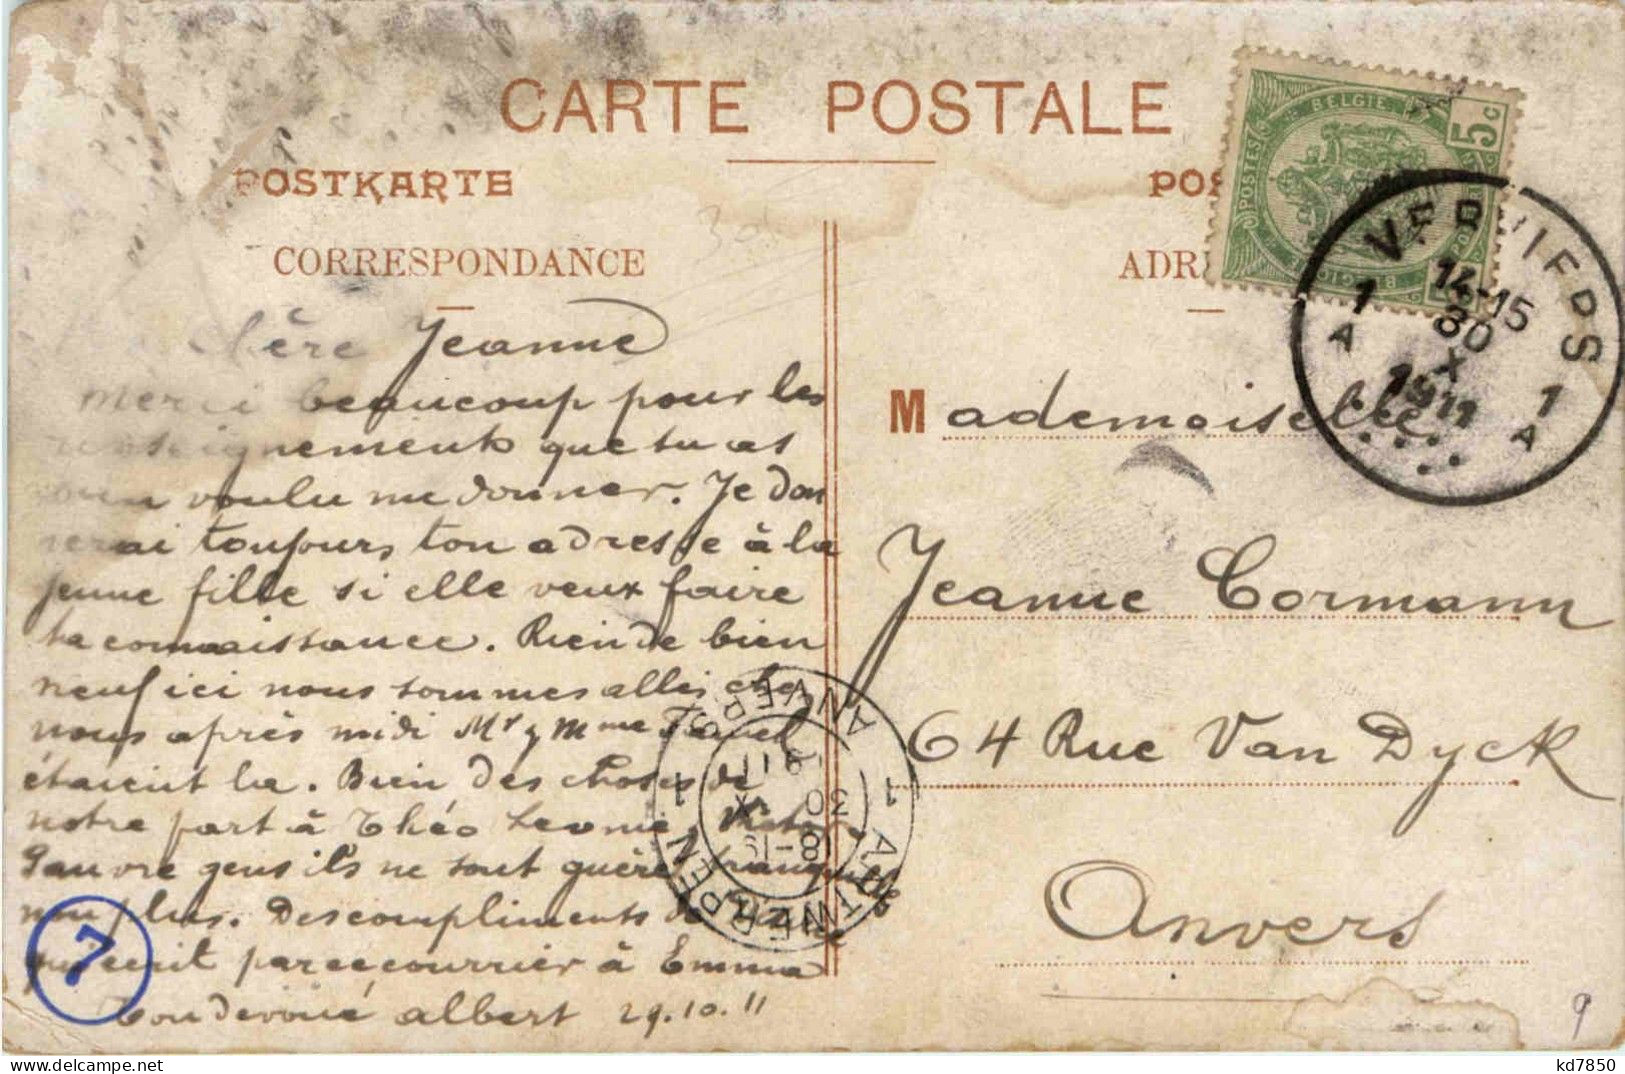 CARTE POSTALE
POSTKARTE
POS
CORRESPONDANCE
ADR
BELGIE
POSTES
5c
VERVIERS
14-15
30
X
1911
1
A
1
A
Chère Jeanne
merci beaucoup pour les
renseignements que tu as
bien voulu me donner. Je don
nerai toujours ton adresse à la
jeune fille si elle veux faire
ta connaissance. Rien de bien
neuf ici nous sommes allés chez
nous après midi Mr y Mme
étaient là. Bien des choses de
notre part à Théo Leonie,
Pauvre gens ils ne sont guère tranquille
non plus. Des compliments de
qui écrit par ce courrier à Emma
Ton dévoué albert 29.10.11
Mademoiselle
Jeanne Cormann
64 Rue Van Dyck
Anvers
1 ANTWERPEN 1 ANVERS
30
X
7
9
kd7850